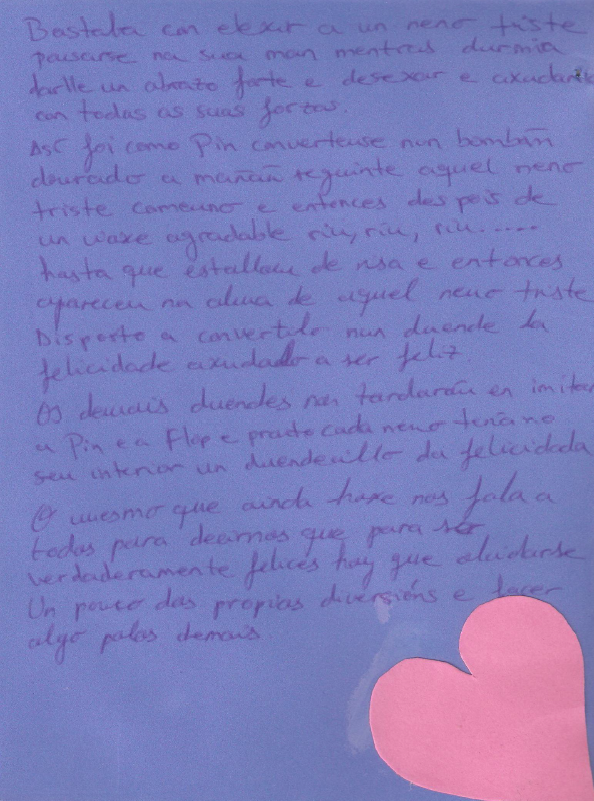 Bastaba con elexir a un neno triste
pousarse na sua man mentras durmia
darlle un abrazo forte e desexar e axudarlle
con todas as suas forzas.
Así foi como Pin converteuse nun bombón
dourado a mañan seguinte aquel neno
triste comeuno e entonces despois de
un viaxe agradable riu, riu, riu.....
hasta que estallou de risa e entonces
apareceu na alma de aquel neno triste
Disposto a convertilo nun duende da
felicidade axudado a ser feliz.
Os demais duendes non tardarón en imitar
a Pin e a Flop e pronto cada neno tenía no
seu interior un duendecillo da felicidade
O mesmo que ainda hoxe nos fala a
todos para decirnos que para ser
verdaderamente felices hay que olvidarse
Un pouco das propias diversións e facer
algo polos demais.